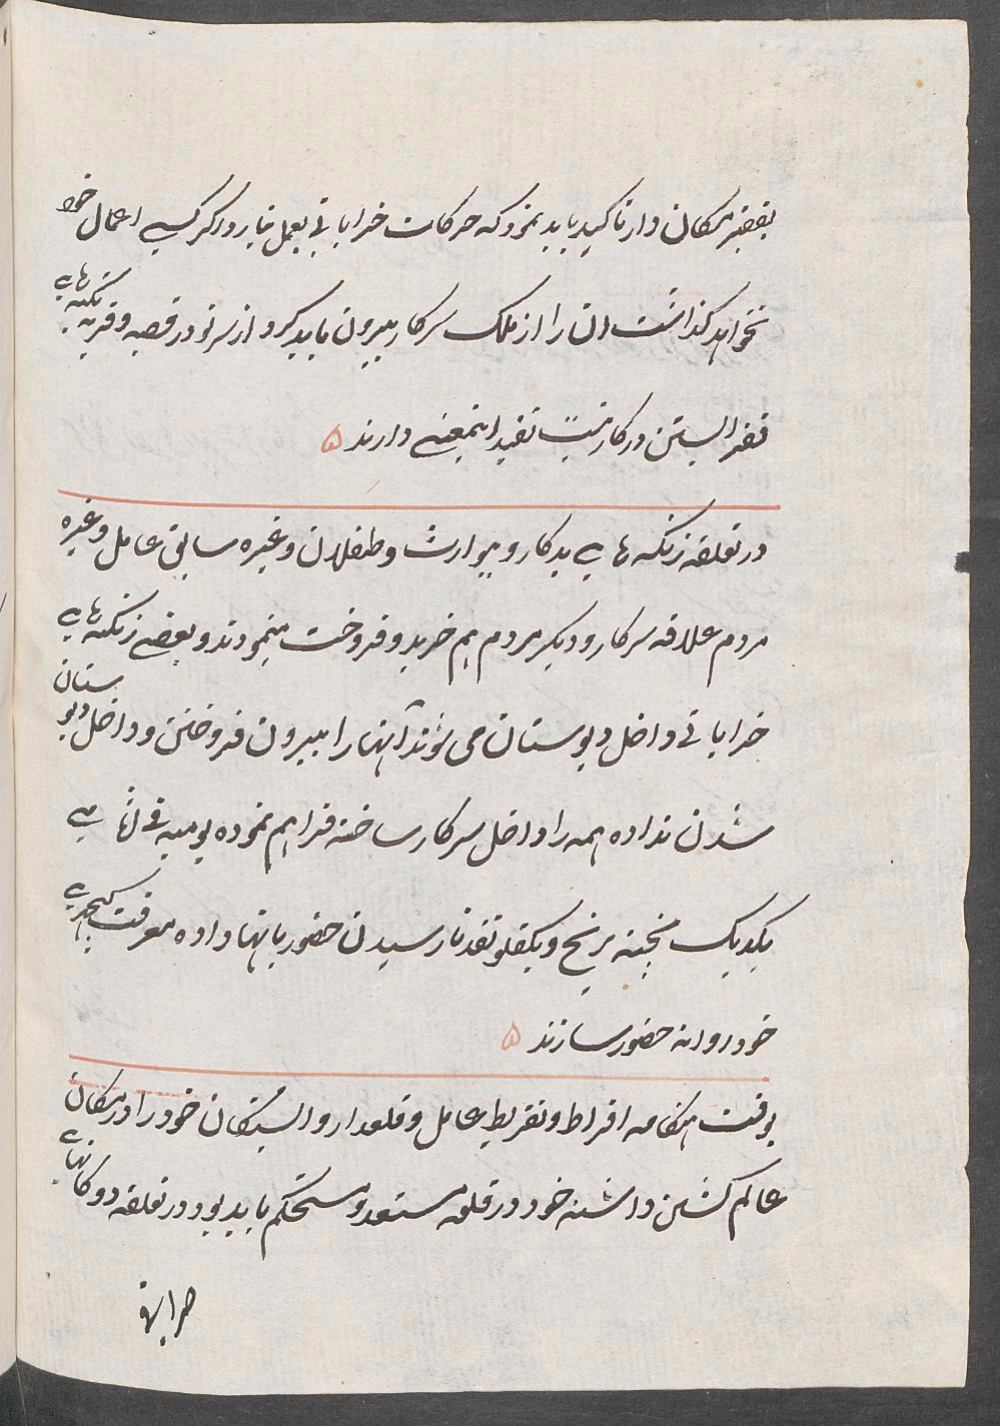 بفقیر مکان دار تاکید باید نمود که حرکات خراباتی بعمل نیارد و اگر کسی اعمال خود
نخواهد گذاشت ان را از ملک سرکار بیرون باید کرد و از سر نو در قصبه و قریه تکیه هایے
فقرا بستن در کار نیست تقید اینمعنے دارند ۵
در تعلقه زنکه هایے بدکار و بیوارث و طفلان و غیره سابق عامل و غیره
مردم علاقه سرکار و دیگر مردم هم خرید و فروخت مینمودند و بعضے زنکه هایے
خراباتے داخل دیوستان می شوند آنها را بیرون فروختن و داخل دیوستان
شدن نداده همه را داخل سرکار ساخته فراهم نموده یومیه فی
یکدیک پخته برنج و یکفلو نقد تا رسیدن حضور بانها داده معرفت کچهریے
خود روانه حضور سازند ۵
بوقت هنگامه افراط و تفریط عامل و قلعدار وابستگان خود را در مکان
عالم کشتن داشته خود در قلعه مستعد و مستحکم باید بود در تعلقه دوکانهایے
صرافے